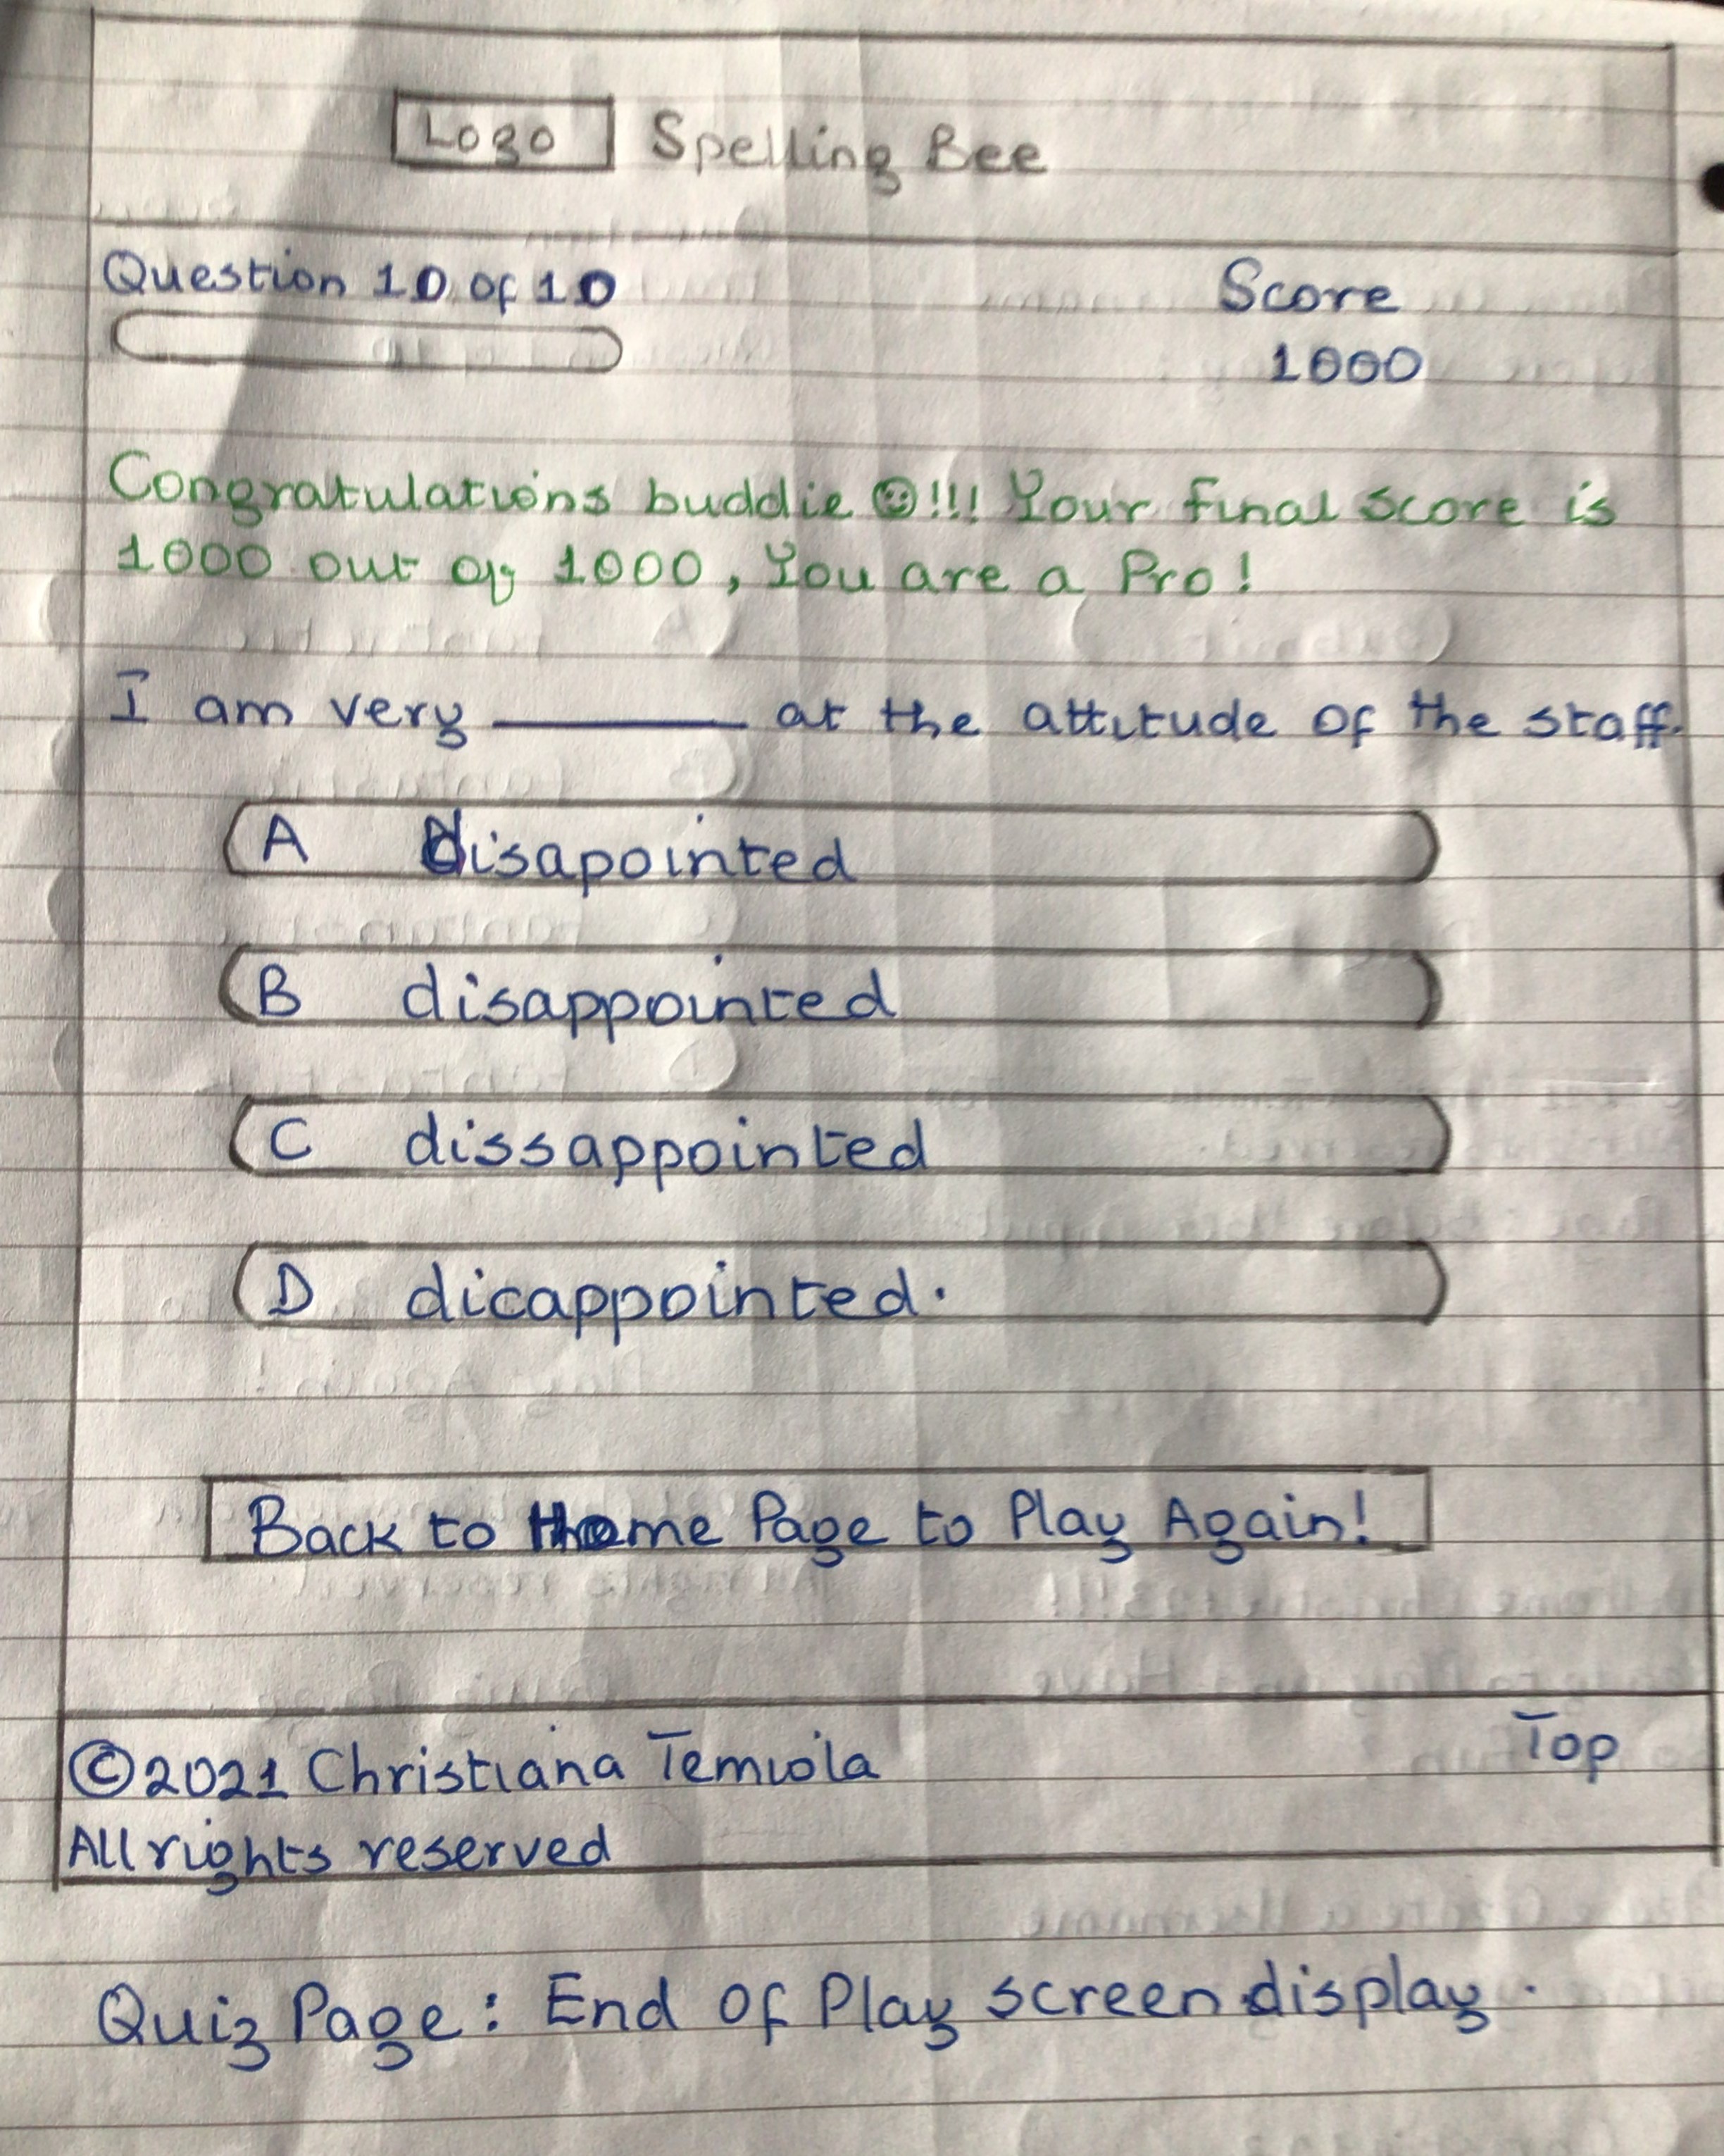 Logo Spelling Bee
Question 10 of 10 Score
1000
Congratulations buddie ☺!!! Your final score is
1000 out of 1000, You are a Pro!
I am very ______ at the attitude of the staff.
A disapointed
B disappointed
C dissappointed
D dicappointed.
Back to Home Page to Play Again!
©2021 Christiana Temiola Top
All rights reserved
Quiz Page: End of Play screen display.